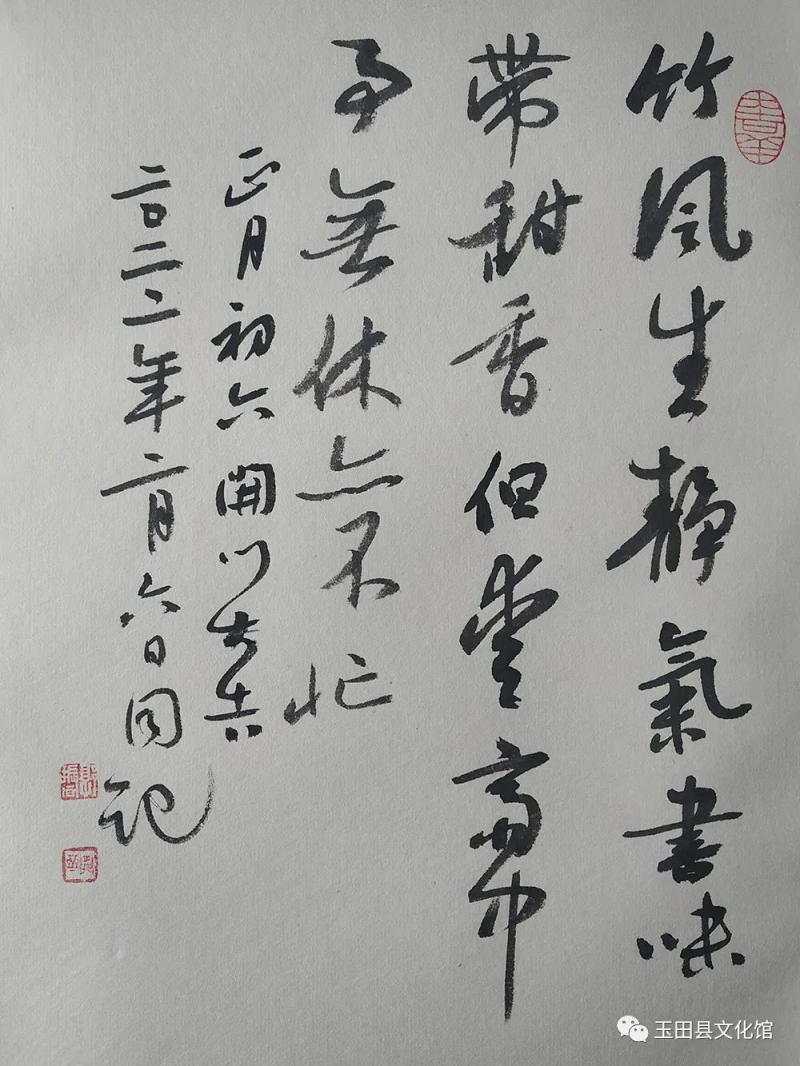 竹风生靜氣書味
帶甜香但愛齋中
事無休亦不忙
正月初六開门大吉
二〇二二年二月六日同記
玉田县文化馆